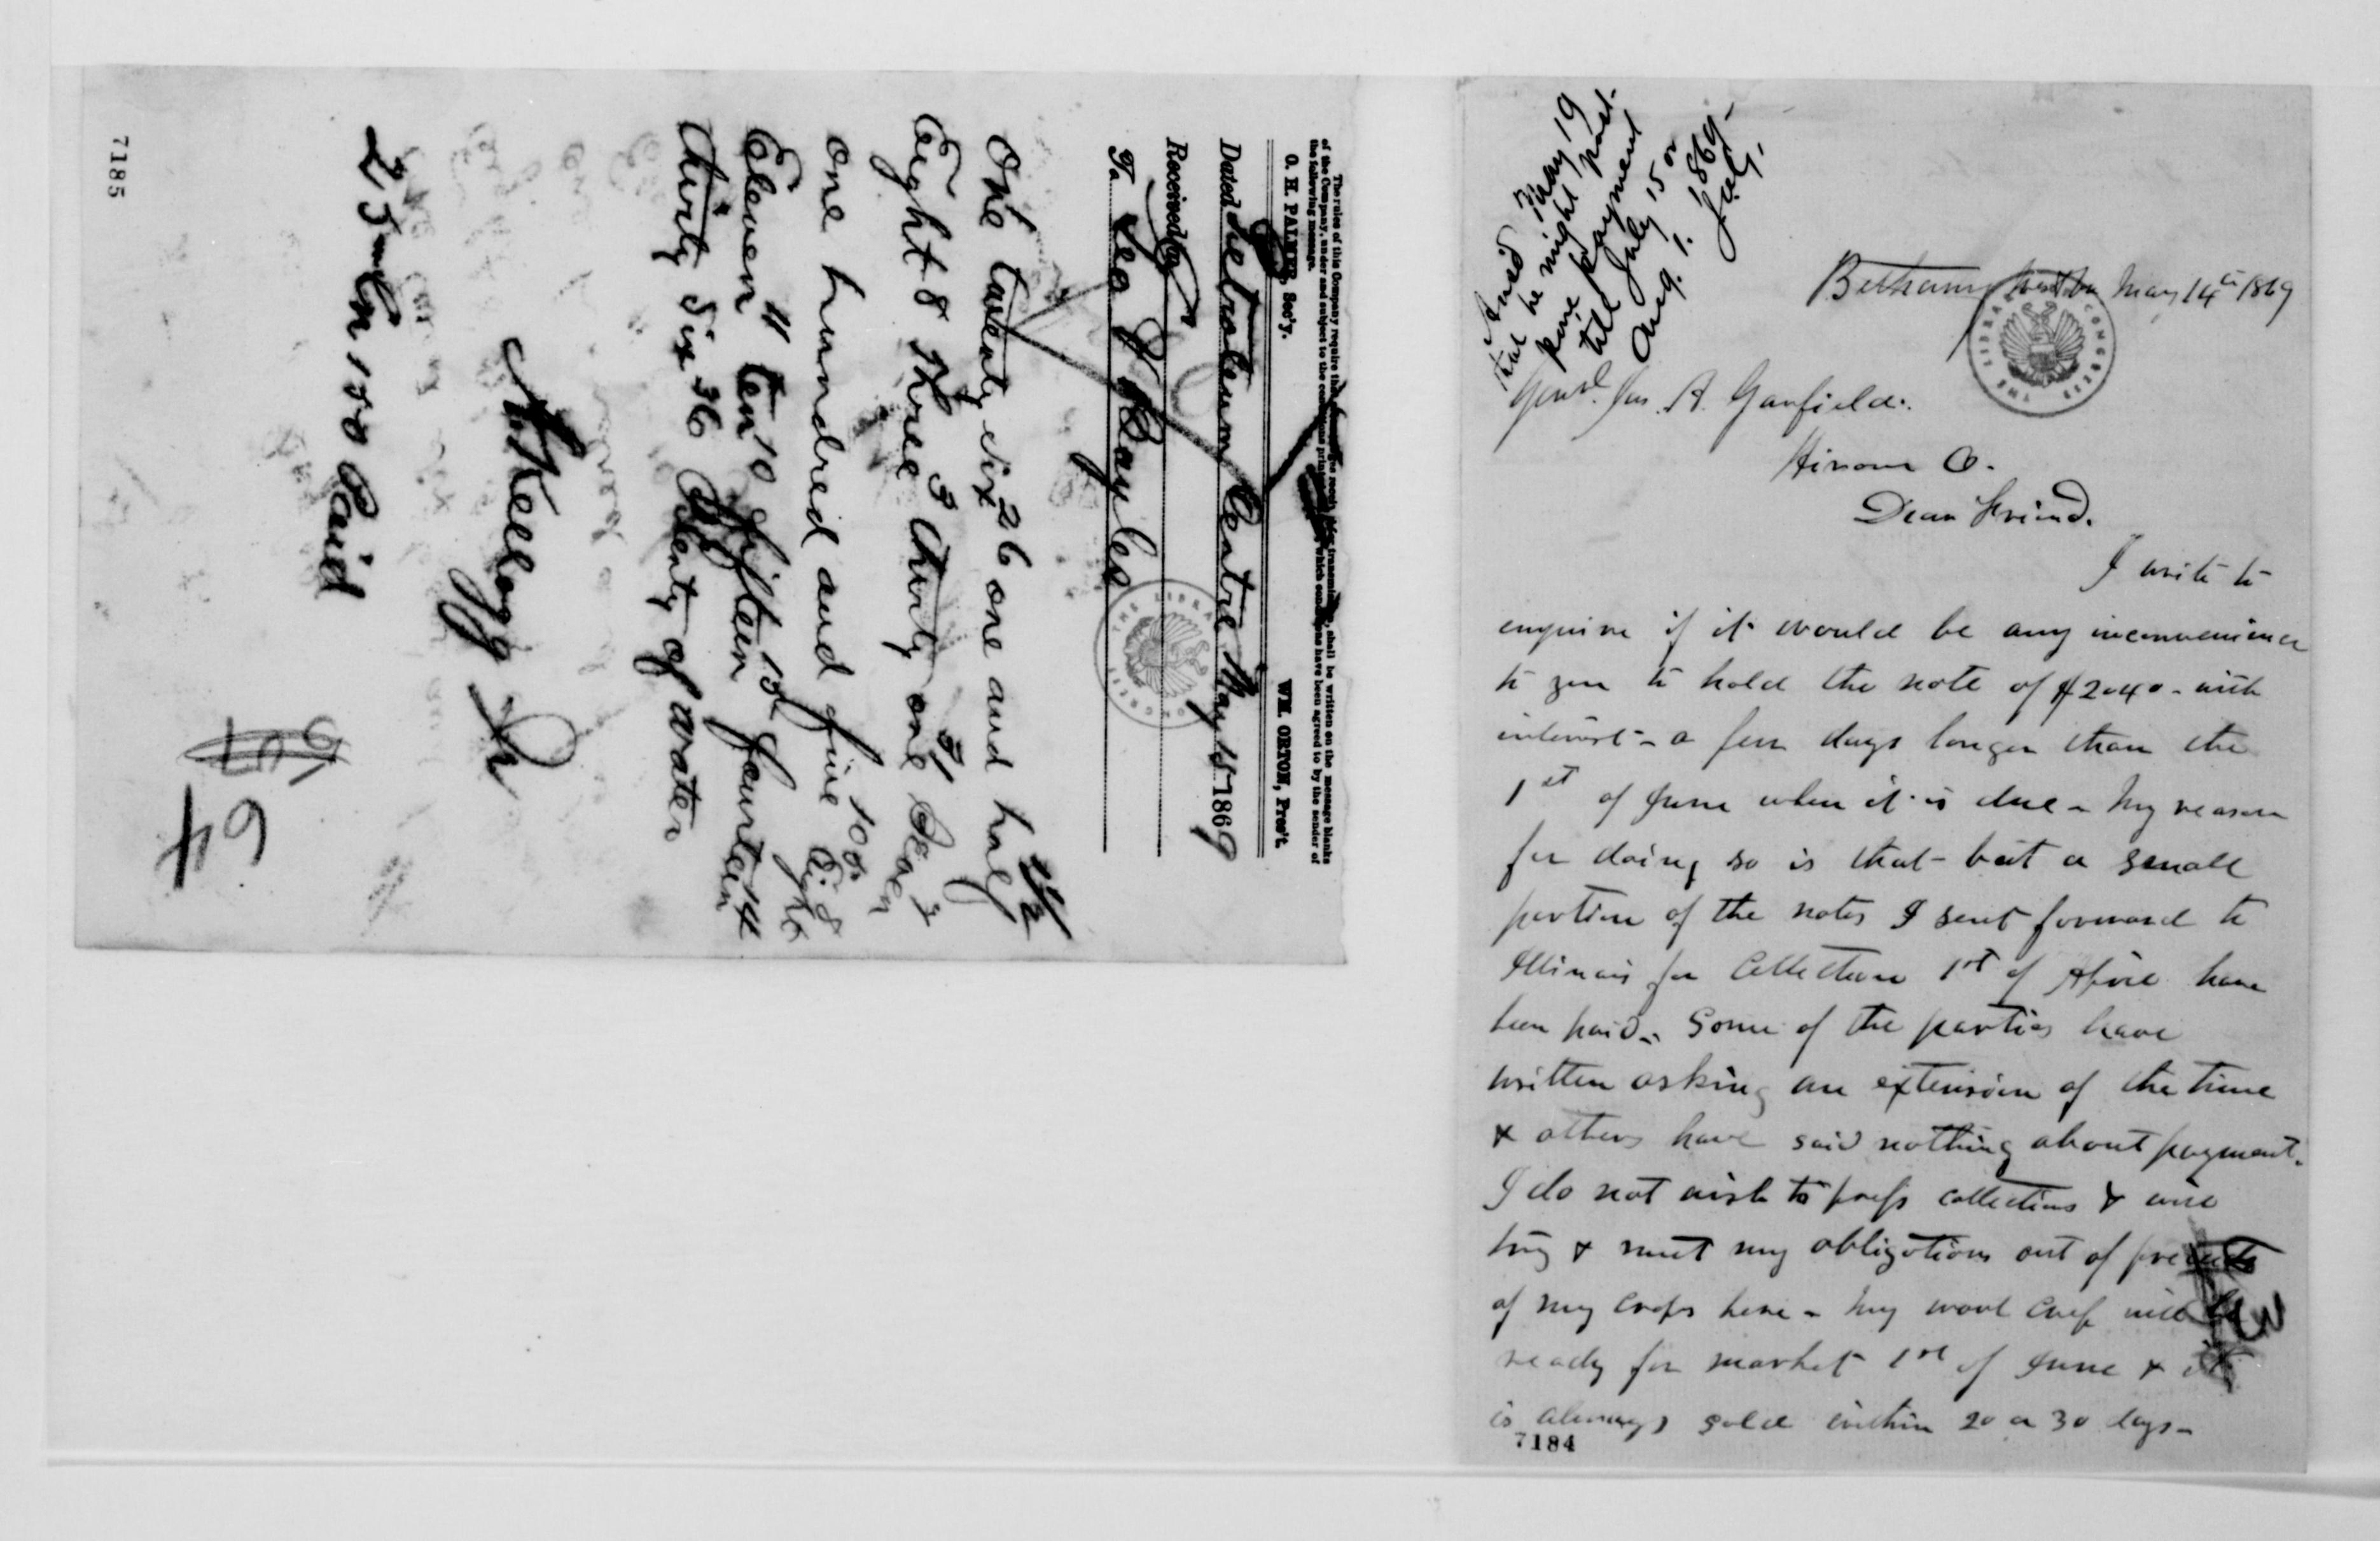 The rules of this Company require that
of the Company, under and subject to the shall be written on the message blanks
the following message. which have been agreed to by the sender of
O. H. PALMER, Sec'y. WM. ORTON, Pres't.
Dated Petroleum Centre May 15 1869
Received
To Geo Bayles
One twenty six 26 one and half 1/2
Eight 8 Three 3 thirty one 31 Seven 7
one hundred and five 105 Eight 8
Eleven 11 ten 10 fifteen 15 fourteen 14
thirty six 36 Plenty of water
Kellogg Jr
25 100 Paid
64
7185
Ansd May 19
that he might post-
pone payment
till July 15 or
Aug. 1. 1869-
Bethany May 14th 1869
THE LIBRARY CONGRESS
Genl. Jas. A. Garfield.
Hiram O.
Dear Friend.
I write to
enquire if it would be any inconvenience
to you to hold the note of $2040- with
interest- a few days longer than the
1st of June when it is due - My reason
for doing so is that but a small
portion of the notes I sent forward to
Illinois for Collection 1st of April have
been paid - Some of the parties have
written asking an extension of the time
& others have said nothing about payment.
I do not wish to press collections & will
try & meet my obligations out of proceeds
of my crops here - My wool crop will be
ready for market 1st of June & it
is always sold within 20 or 30 days -
7184